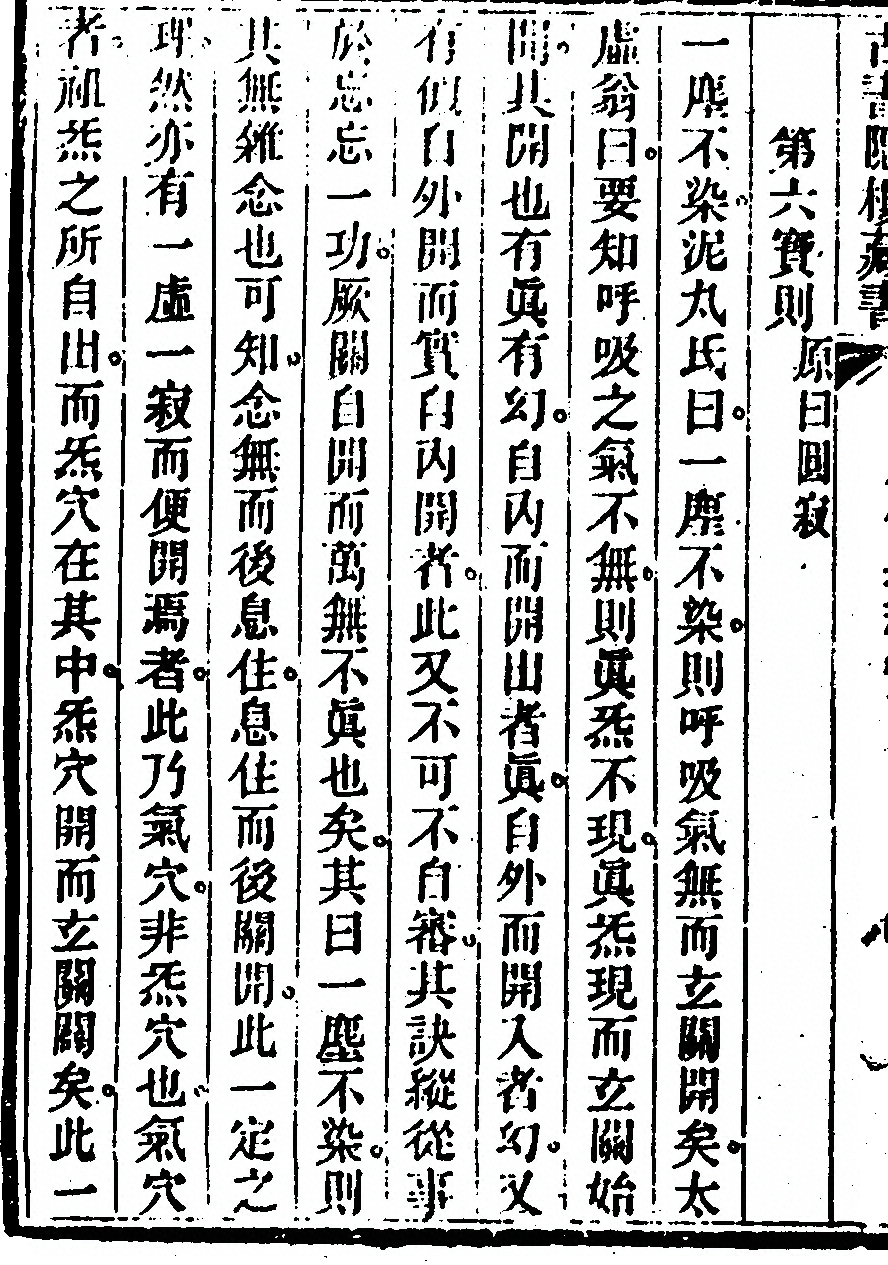 古書隱樓藏書
第六寶則 原曰圓寂
一塵不染泥丸氏曰一塵不染則呼吸氣無而玄關開矣太
虛翁曰要知呼吸之氣不無則眞炁不現眞炁現而玄關始
開其開也有眞有幻自內而開出者眞自外而開入者幻又
有似自外開而實自內開者此又不可不自審其訣縱從事
於忘忘一功厥關自開而萬無不眞也矣其曰一塵不染則
其無雜念也可知念無而後息住息住而後關開此一定之
理然亦有一虛一寂而便開焉者此乃氣穴非炁穴也氣穴
者祖炁之所自出而炁穴在其中炁穴開而玄關闢矣此一